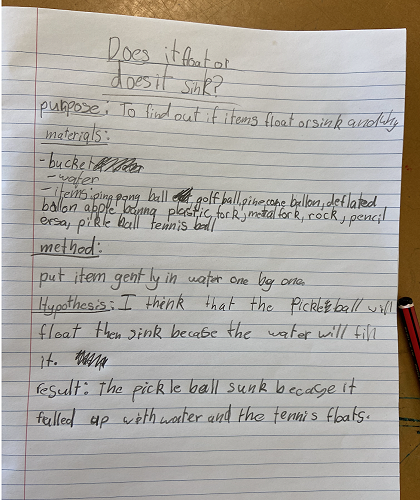 Does it float or
does it sink?
purpose: To find out if items float or sink and why
materials:
- bucket
- water
- items: ping pong ball golf ball, pinecone ballon, deflated
ballon apple banna plastic, fork, metal fork, rock, pencil
ersa, pikle ball tennis ball
method:
put item gently in water one by one.
Hypothesis: I think that the Pickle ball will
float then sink becase the water will fill
it.
result: The pickle ball sunk becase it
falled up with water and the tennis floats.